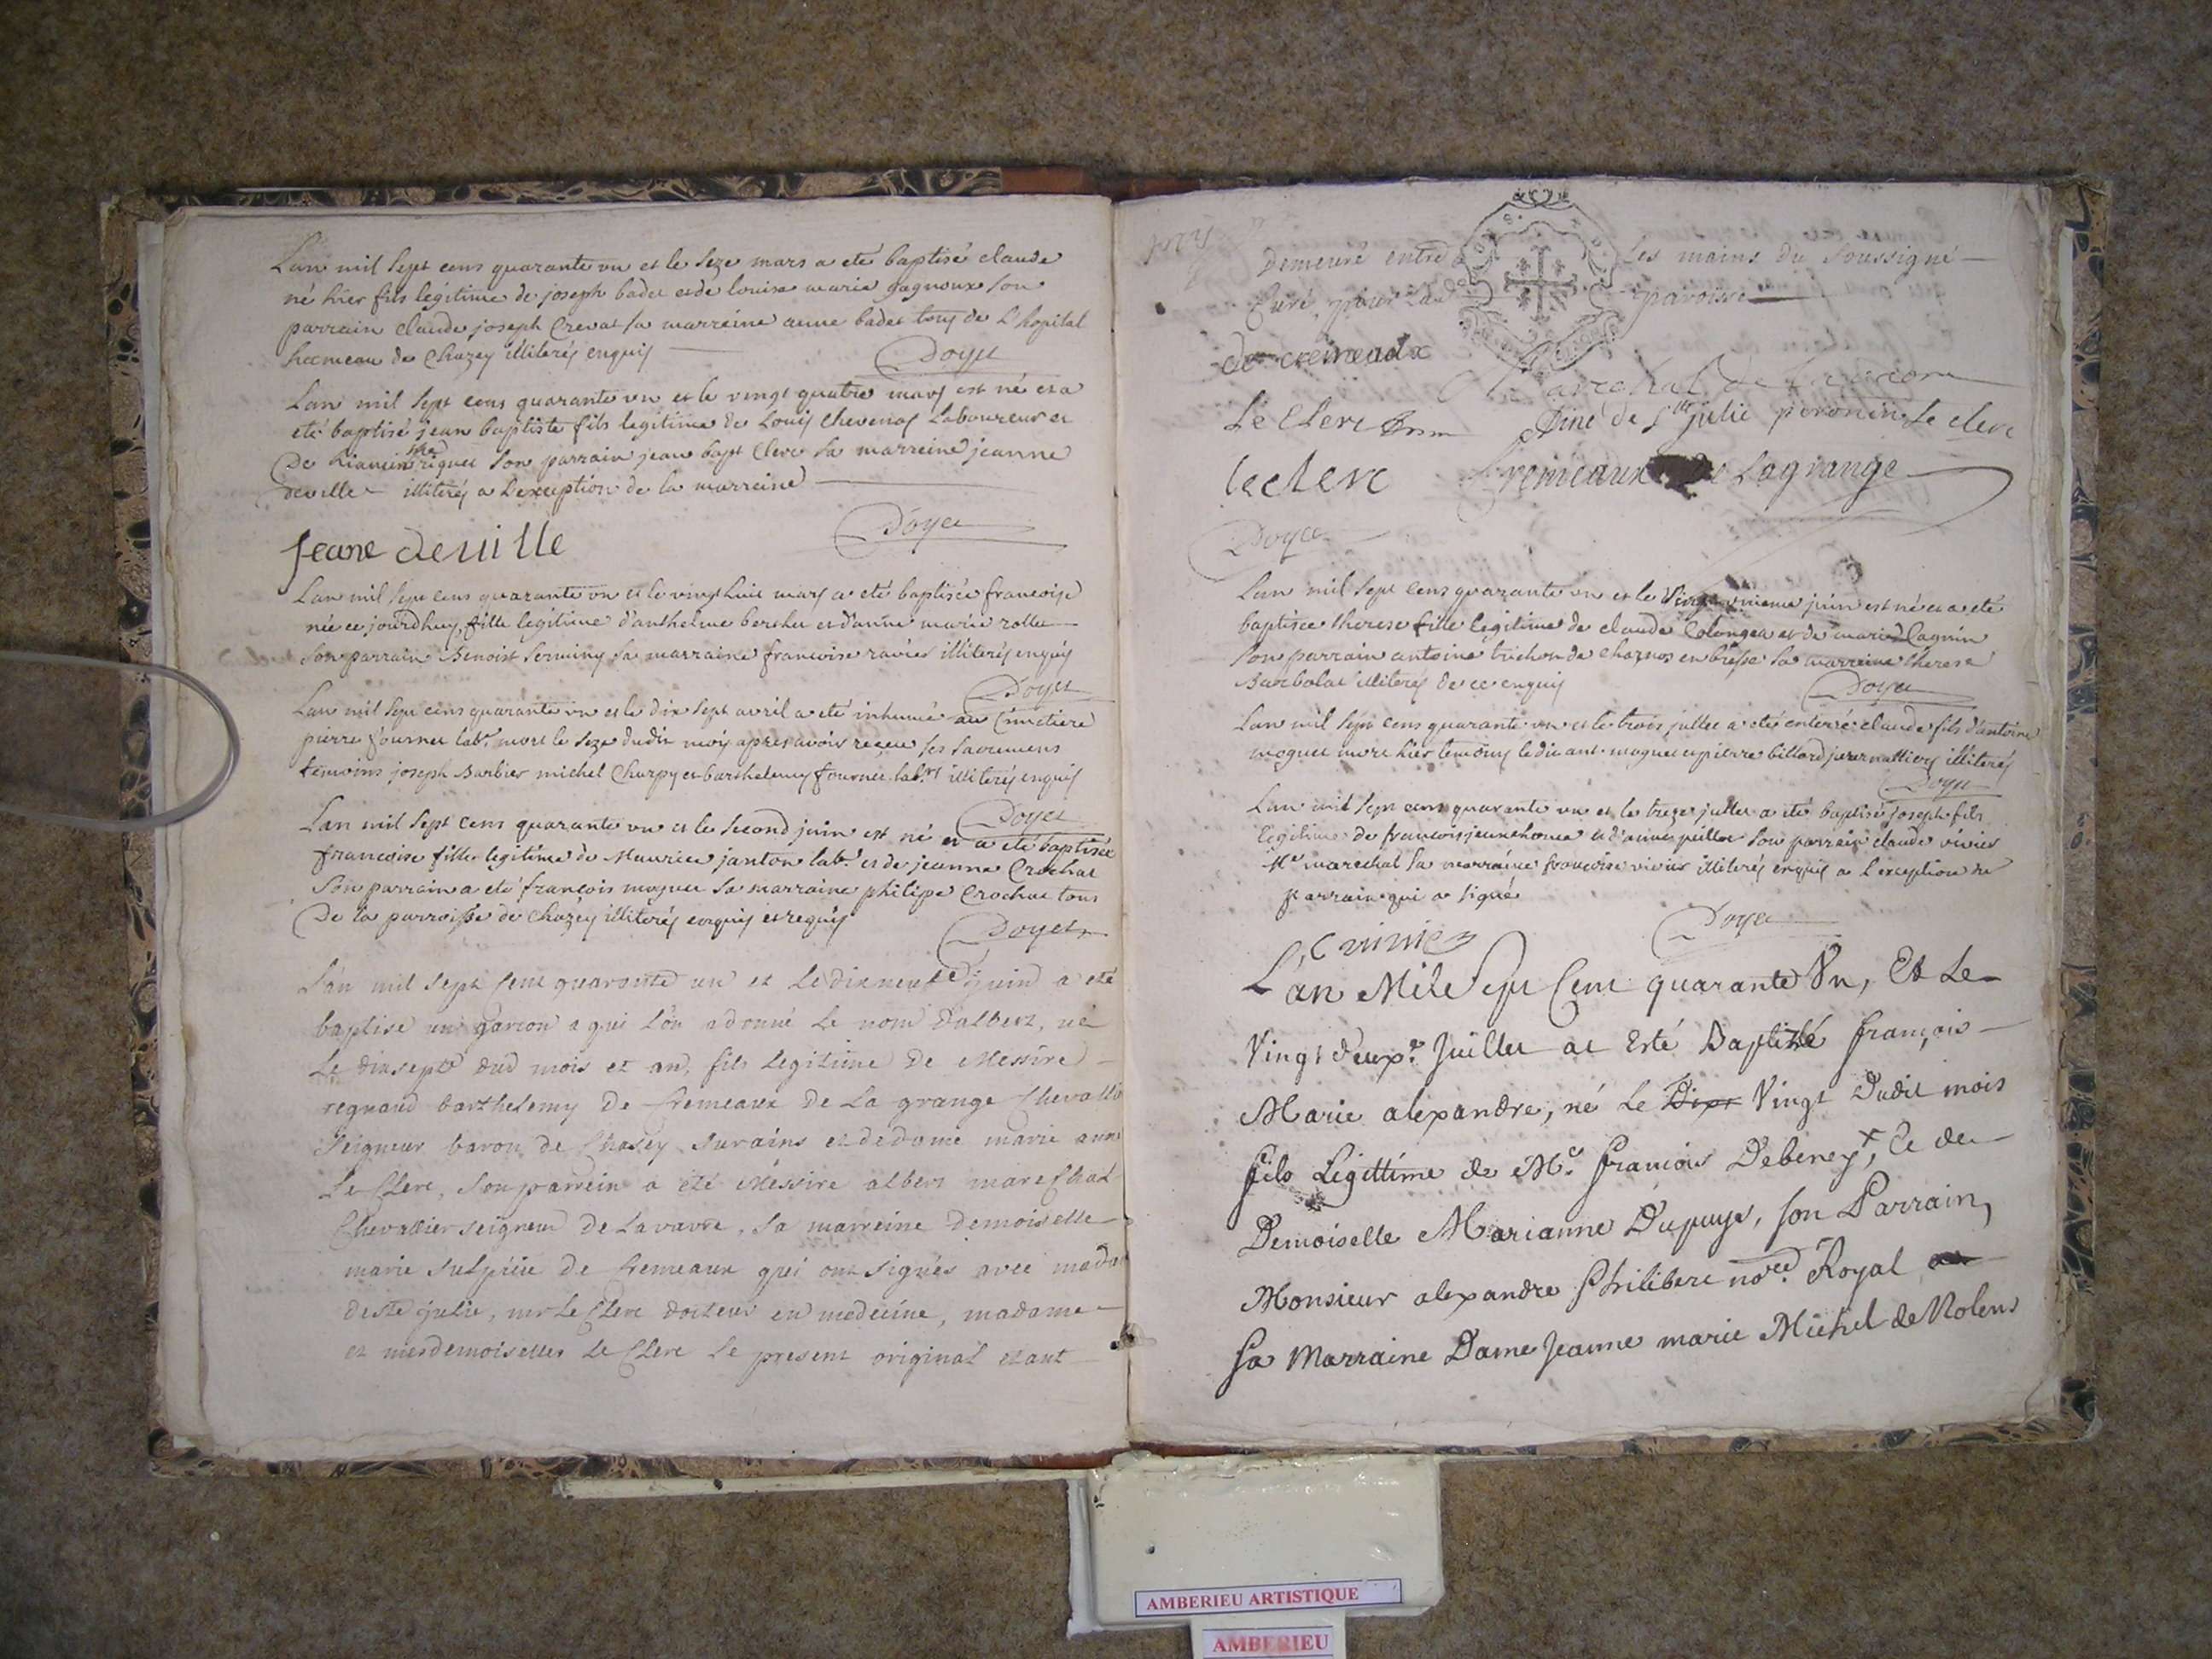 Lan mil sept cens quarante vn et le seze mars a eté baptisé claude
né hier fils legitime de joseph badet et de louise marie gagnoux son
parrain claude joseph Crevat sa marreine anne badet tous de L'hopital
hameau de Chazey illiterés enquis
Doyet
Lan mil sept cens quarante vn et le vingt quatre mars est né et a
eté baptisé jean baptiste fils legitime de Louis chevenas Laboureur et
De riquet son parrain jean bapt Clerc sa marreine jeanne
deville illiterés a L'exception de la marreine
Doyet
jeane deville
Lan mil sept cens quarante vn et le vingt huit mars a eté baptisée francoise
née ce jourdhuy, fille legitime d'anthelme berthet et d'anne marie rollet
Son parrain Benoist sa marraine francoise ravier illiterés enquis
Doyet
Lan mil sept cens quarante vn et le dix sept avril a eté inhumé au Cimetiere
pierre fournet labr. mort le seze dudit mois apres avoir receu ses sacremens
temoins joseph Barbier michel Charpy et barthelemy fournet labrs illiterés enquis
Doyet
Lan mil sept cens quarante vn et le second juin est né et a eté baptisée
francoise fille legitime de Maurice janton labr. et de jeanne Crochat
Son parrain a eté françois moguet sa marraine philipe Crochat tous
De la parroisse de Chazey illiterés enquis et requis
Doyet
L'an mil sept cent quarante un et le dixneufe juin a eté
baptisé un garcon a qui l'on a donné le nom d'albert, né
le dixsepte dud mois et an, fils legitime de Messire
regnaud barthelemy De Cremeaux de La grange Chevallier
Seigneur baron de Chasey surains et de dame marie anne
Le Clerc, son parrein a eté Messire albert mareschal
Chevallier seigneur de Lavavre, sa marreine demoiselle
marie sulpice de Cremeaux qui ont signés avec mada
de ste julie, mr Le Clerc docteur en medecine, madame
et mesdemoiselles Le Clerc le present original etant
Demeuré entre Les mains du soussigné
Curé pour lad paroisse
de cremeaux
Marechal de
Le Clerc
Diné de Ste julie peronin Le clerc
leclerc
Cremeaux de Lagrange
Doyet
Lan mil sept cens quarante vn et le vingt juin est né et a eté
baptisée therese fille legitime de claude Colonges et de marie Cagnin
Son parrain antoine trichon de en bresse sa marreine therese
Barbolat illiterés de ce enquis
Doyet
Lan mil sept cens quarante vn et le trois juillet a eté enterré claude fils d'antoine
moguet mort hier temoins ledit ant. moguet et pierre billard journalliers illiterés
Doyet
Lan mil sept cens quarante vn et le treze juillet a eté baptisé joseph fils
legitime de francois jeunehomme et d'anne peillot son parrain claude vivier
Me marechal sa marraine francoise vivier illiterés enquis a l'exception du
parrain qui a signé
Doyet
L'an Mile sept Cent quarante Vn, Et Le
Vingt deuxe. Juillet at Esté Baptizé françois
Marie alexandre, né Le Dixs Vingt Dudit mois
fils Legittime de Mre. francois Debeney, Ce de
Demoiselle Marianne Dupuys, son Parrain,
Monsieur alexandre Philibert nore. Royal
sa Marraine Dame Jeanne marie Michel de Rolens
AMBERIEU ARTISTIQUE
AMBERIEU